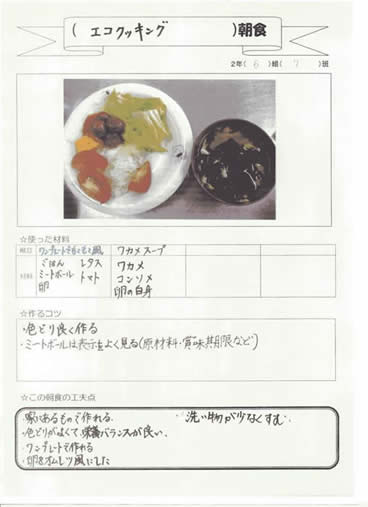 ( エコクッキング )朝食
2年( 6 )組( 7 )班
☆使った材料
ワカメスープ
ごはん レタス ワカメ
ミートボール トマト コンソメ
卵 卵の白身
☆作るコツ
・色どり良く作る
・ミートボールは表示をよく見る(原材料・賞味期限など)
☆この朝食の工夫点
・家にあるもので作れる。 ・洗い物が少なくすむ。
・色どりがよくて、栄養バランスが良い。
・ワンプレートで作れる
・卵をオムレツ風にした